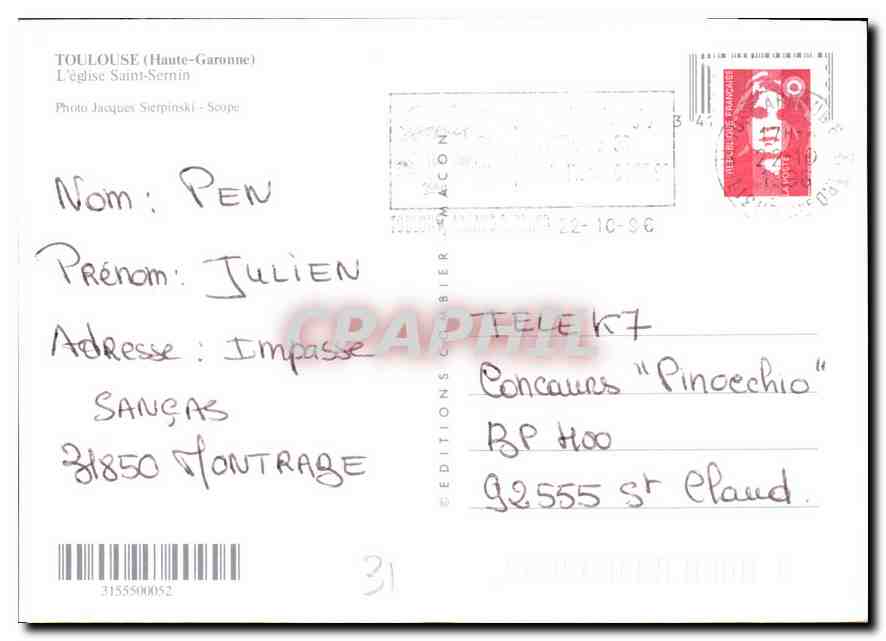 TOULOUSE (Haute-Garonne)
L'église Saint-Sernin
Photo Jacques Sierpinski - Scope
Nom : PEN
Prénom : JULIEN
Adresse : Impasse
SANÇAS
31850 MONTRABE
3155500052
31
© EDITIONS COMBIER MACON
22-10-96
REPUBLIQUE FRANÇAISE
LA POSTE
17H
22-10
TELE K7
Concours "Pinocchio"
BP 400
92555 St Cloud.
CPAPHIL